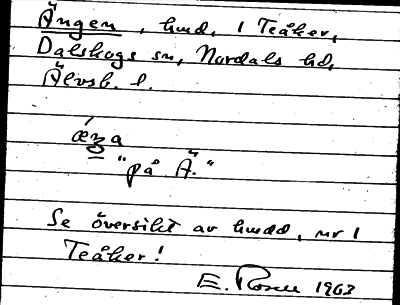 Ängen, hmd, 1 Teåker,
Dalskogs sn, Nordals hd,
Älvsb. l.
"på Ä."
Se översikt av hmdd, nr 1
Teåker!
E. 1963